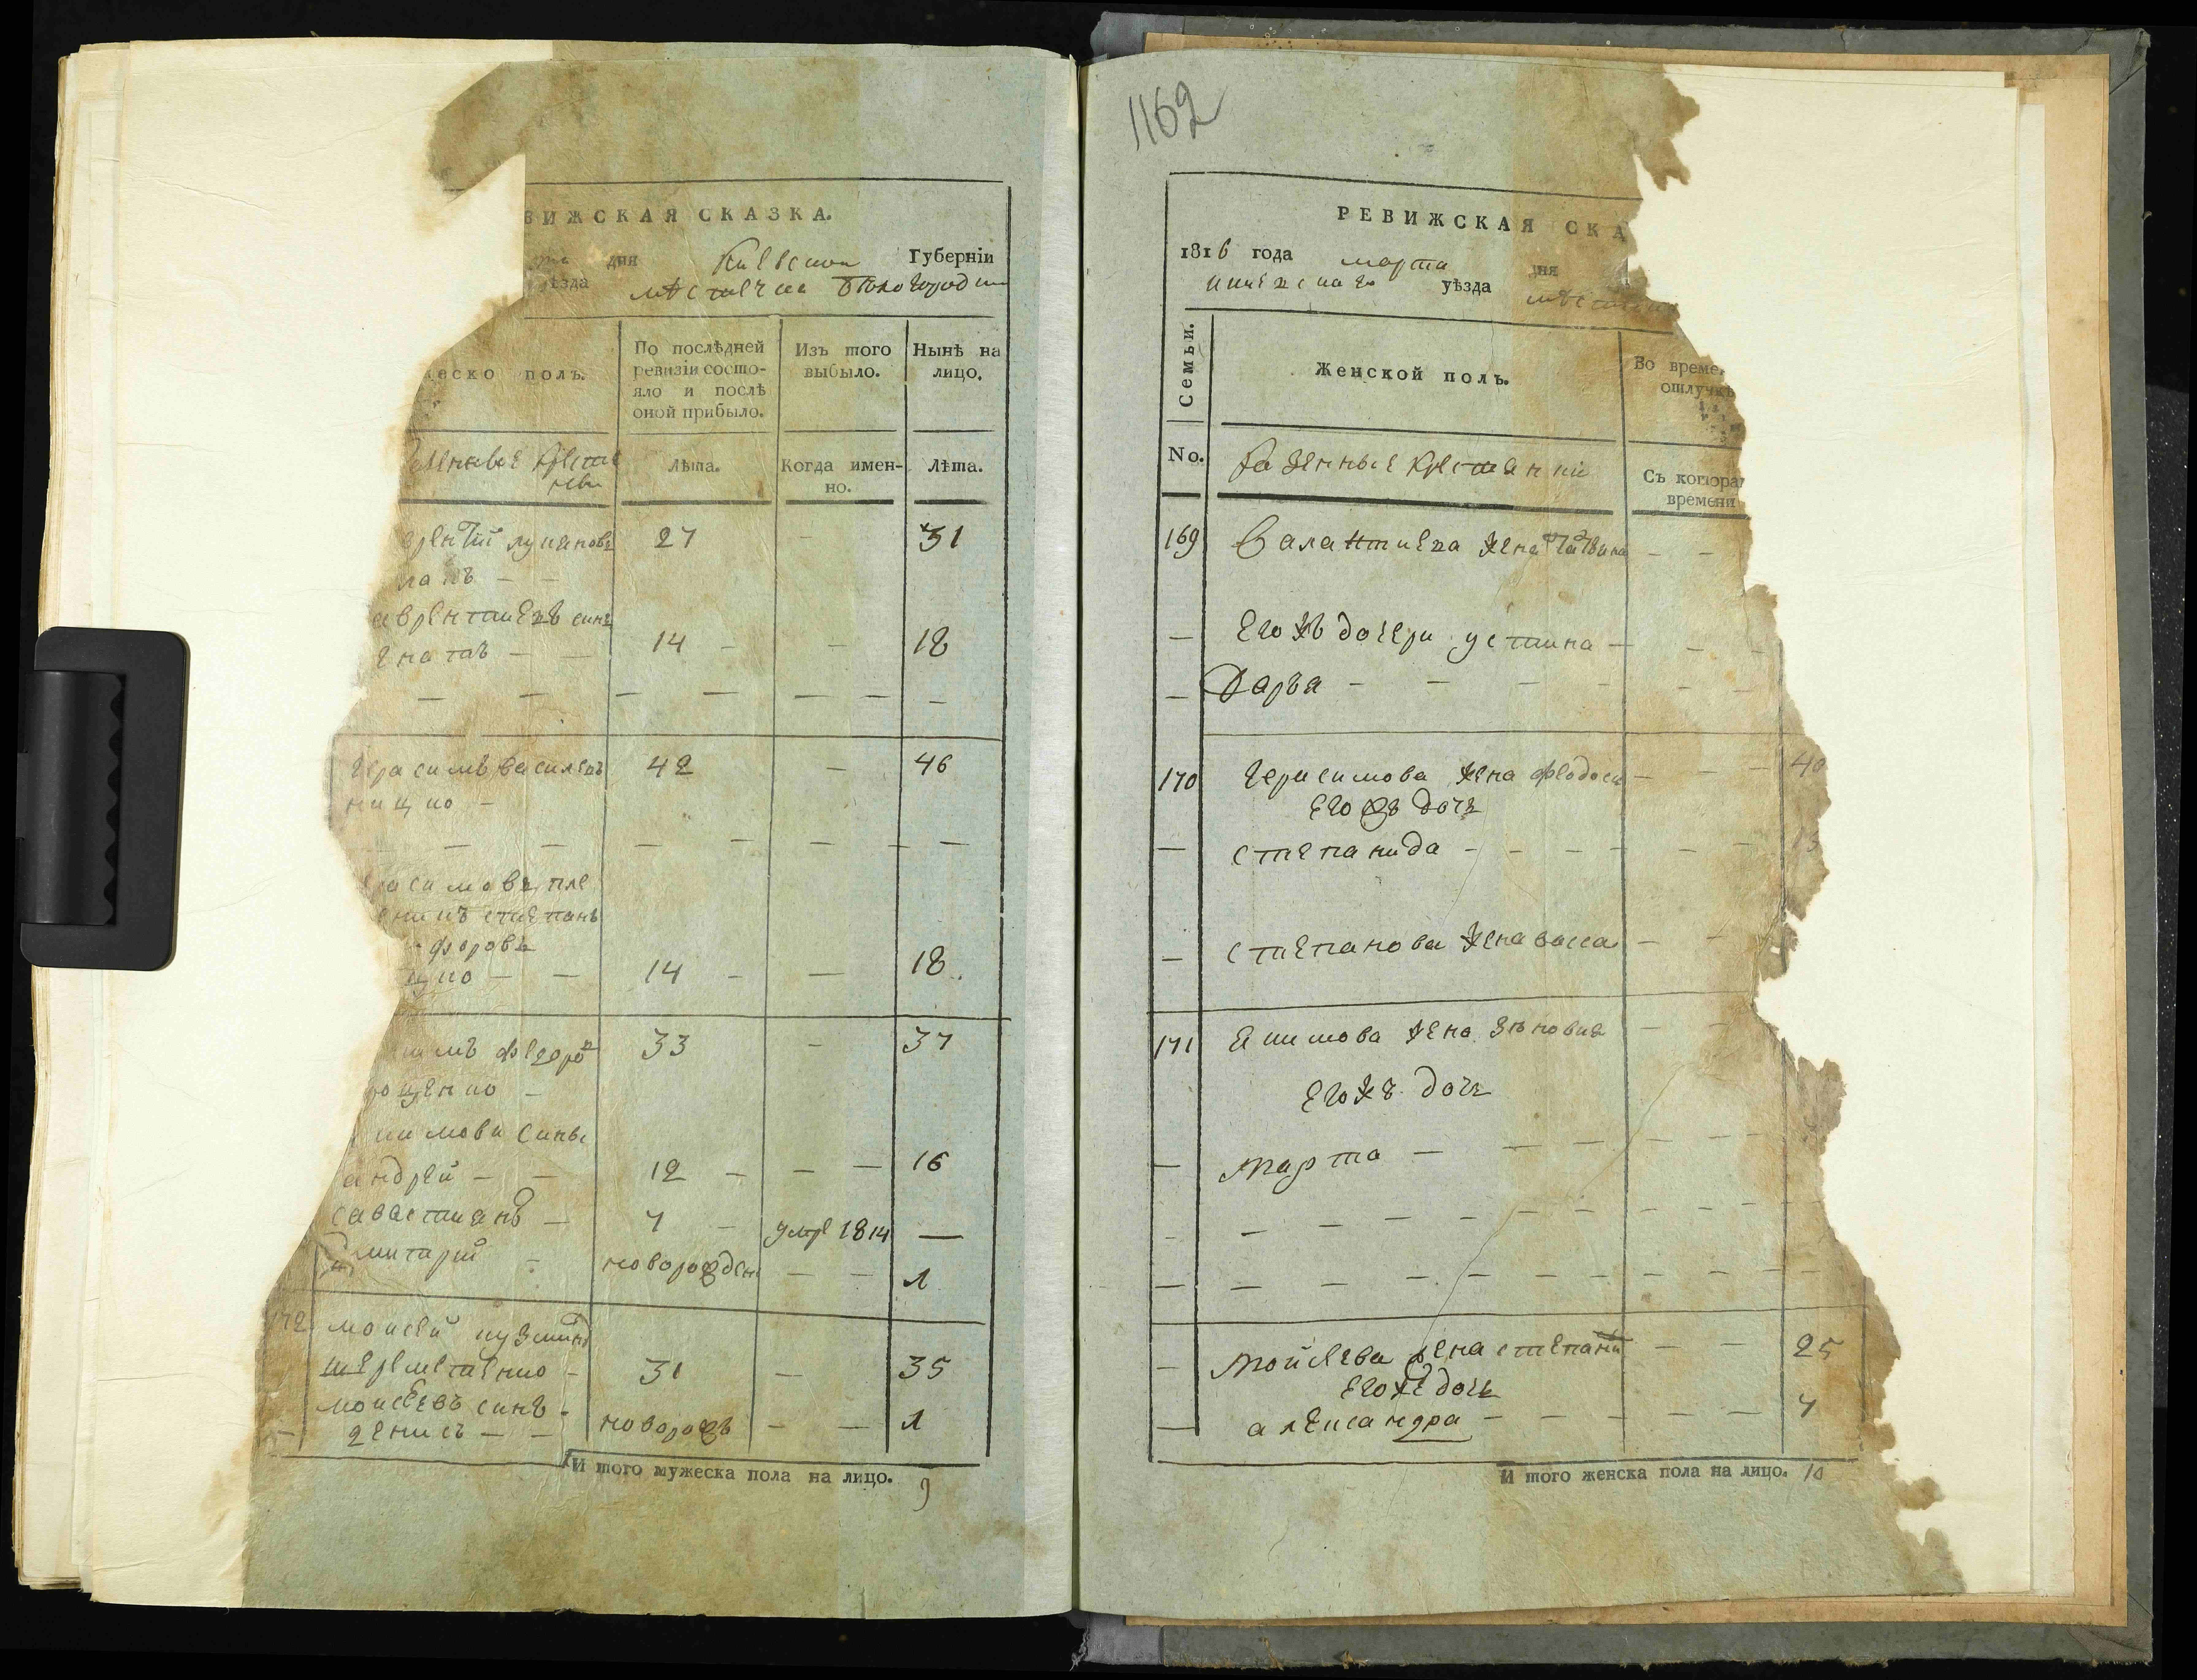 ВИЖСКАЯ СКАЗКА.
дня Киевской Губерніи
ѣзда мѣстечка Белогородки
ческо полъ.
По послѣдней
ревизіи состо-
яло и послѣ
оной прибыло.
Изъ того
выбыло.
Нынѣ на
лицо.
Лѣта.
Когда имен-
но.
Лѣта.
врентій лукяновъ 27 - 31
аврентиевъ синъ
гнатъ - - 14 - - 18
герасимъ василевъ 42 - 46
ницко -
расимовъ пле
еникъ степанъ
форовъ
цко - - 14 - - 18
кимъ федоровъ 33 - 37
ощенко -
кимови сини
андрей - - 12 - - - 16
савастиянъ - 7 - умре 1814 -
Дмитарій - новорожден - - 1
172 моисей кузминъ
шереметенко - 31 - 35
моисеевъ синъ -
- денисъ - - новорожъ - - 1
И того мужеска пола на лицо. 9
1162
РЕВИЖСКАЯ СКА
1816 года марта дня
уѣзда
Семьи.
Женской полъ.
Во време
отлучкѣ
No. Казенные крестянки
Съ котора
времени
169 валантиева жена - -
- Его жъ дочери устина - - -
- Дарья - - - - - -
170 герасимова жена феодоси - - - 40
Его жъ дочъ
- степанида - - - - - - 13
- степанова жена васса - -
171 Якимова жена зѣновия - -
Его жъ дочъ
- марта - - - - - -
- Мойсеева жена степани - - 25
Его же дочъ
- александра - - - - - 7
И того женска пола на лицо. 10